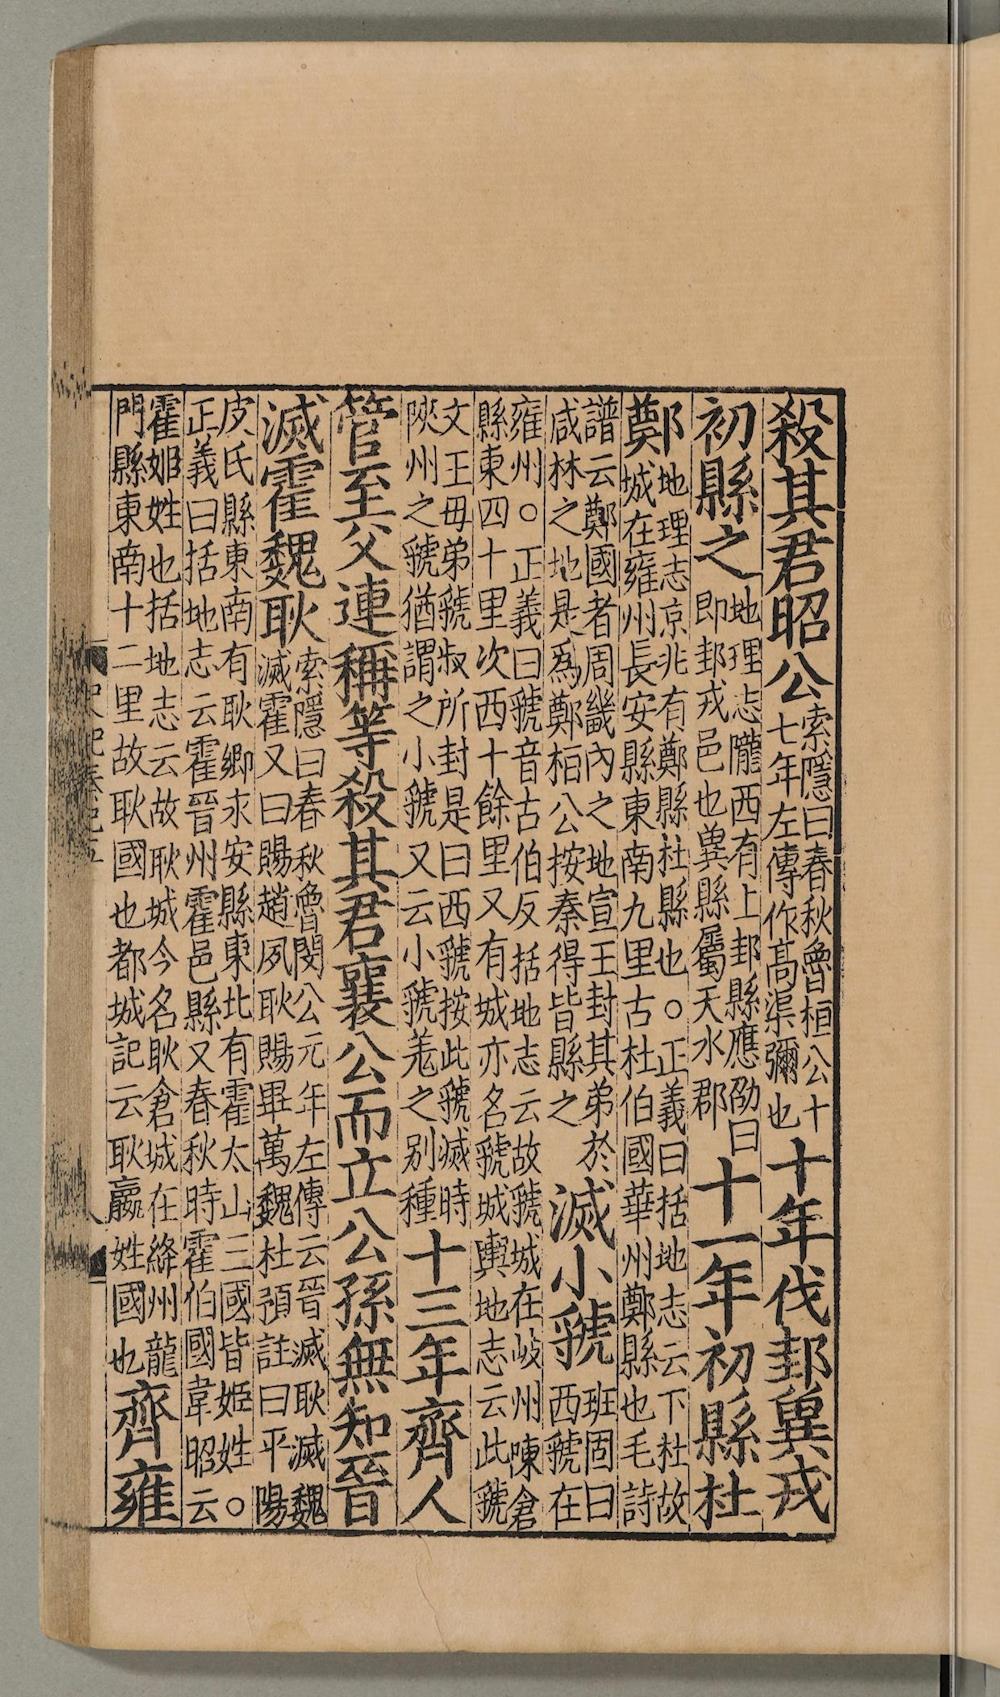 殺其君昭公索隱曰春秋魯桓公十七年左傳作高渠彌也十年伐邽冀戎
初縣之地理志隴西有上邽縣應劭曰即邽戎邑也冀縣屬天水郡十一年初縣杜
鄭地理志京兆有鄭縣杜縣也。正義曰括地志云下杜故城在雍州長安縣東南九里古杜伯國華州鄭縣也毛詩
譜云鄭國者周畿內之地宣王封其弟於咸林之地是爲鄭桓公按秦得皆縣之滅小虢班固曰西虢在
雍州。正義曰虢音古伯反括地志云故虢城在岐州陳倉縣東四十里次西十餘里又有城亦名虢城輿地志云此虢
文王母弟虢叔所封是曰西虢按此虢滅時陝州之虢猶謂之小虢又云小虢羗之别種十三年齊人
管至父連稱等殺其君襄公而立公孫無知晉
滅霍魏耿索隱曰春秋魯閔公元年左傳云晉滅耿滅魏滅霍又曰賜趙夙耿賜畢萬魏杜預註曰平陽
皮氏縣東南有耿鄉永安縣東北有霍太山三國皆姬姓。正義曰括地志云霍晉州霍邑縣又春秋時霍伯國韋昭云
霍姬姓也括地志云故耿城今名耿倉城在絳州龍門縣東南十二里故耿國也都城記云耿嬴姓國也齊雍